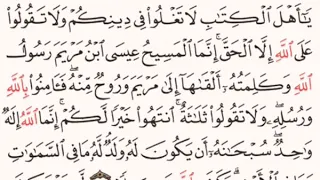 يَٰٓأَهْلَ ٱلْكِتَٰبِ لَا تَغْلُوا۟ فِى دِينِكُمْ وَلَا تَقُولُوا۟
عَلَى ٱللَّهِ إِلَّا ٱلْحَقَّ ۚ إِنَّمَا ٱلْمَسِيحُ عِيسَى ٱبْنُ مَرْيَمَ رَسُولُ
ٱللَّهِ وَكَلِمَتُهُۥٓ أَلْقَىٰهَآ إِلَىٰ مَرْيَمَ وَرُوحٌ مِّنْهُ ۖ فَـَٔامِنُوا۟ بِٱللَّهِ
وَرُسُلِهِۦ ۖ وَلَا تَقُولُوا۟ ثَلَٰثَةٌ ۚ ٱنتَهُوا۟ خَيْرًا لَّكُمْ ۚ إِنَّمَا ٱللَّهُ إِلَٰهٌ
وَٰحِدٌ ۖ سُبْحَٰنَهُۥٓ أَن يَكُونَ لَهُۥ وَلَدٌ ۘ لَّهُۥ مَا فِى ٱلسَّمَٰوَٰتِ